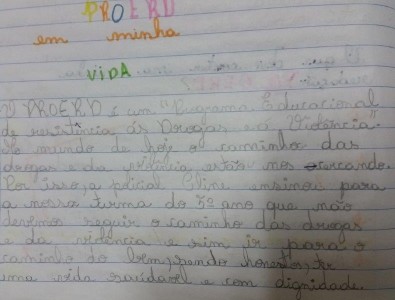 PROERD
em minha
VIDA
O PROERD é um "Programa Educacional
de resistência ás Drogas e á Violência".
No mundo de hoje o caminho das
drogas e da violência estão nos cercando.
Por isso, a policial Eline ensinou para
a nossa turma do 5º ano que não
devemos seguir o caminho das drogas
e da violência e sim ir para o
caminho do bem, sendo honestos, ter
uma vida saudável e com dignidade.